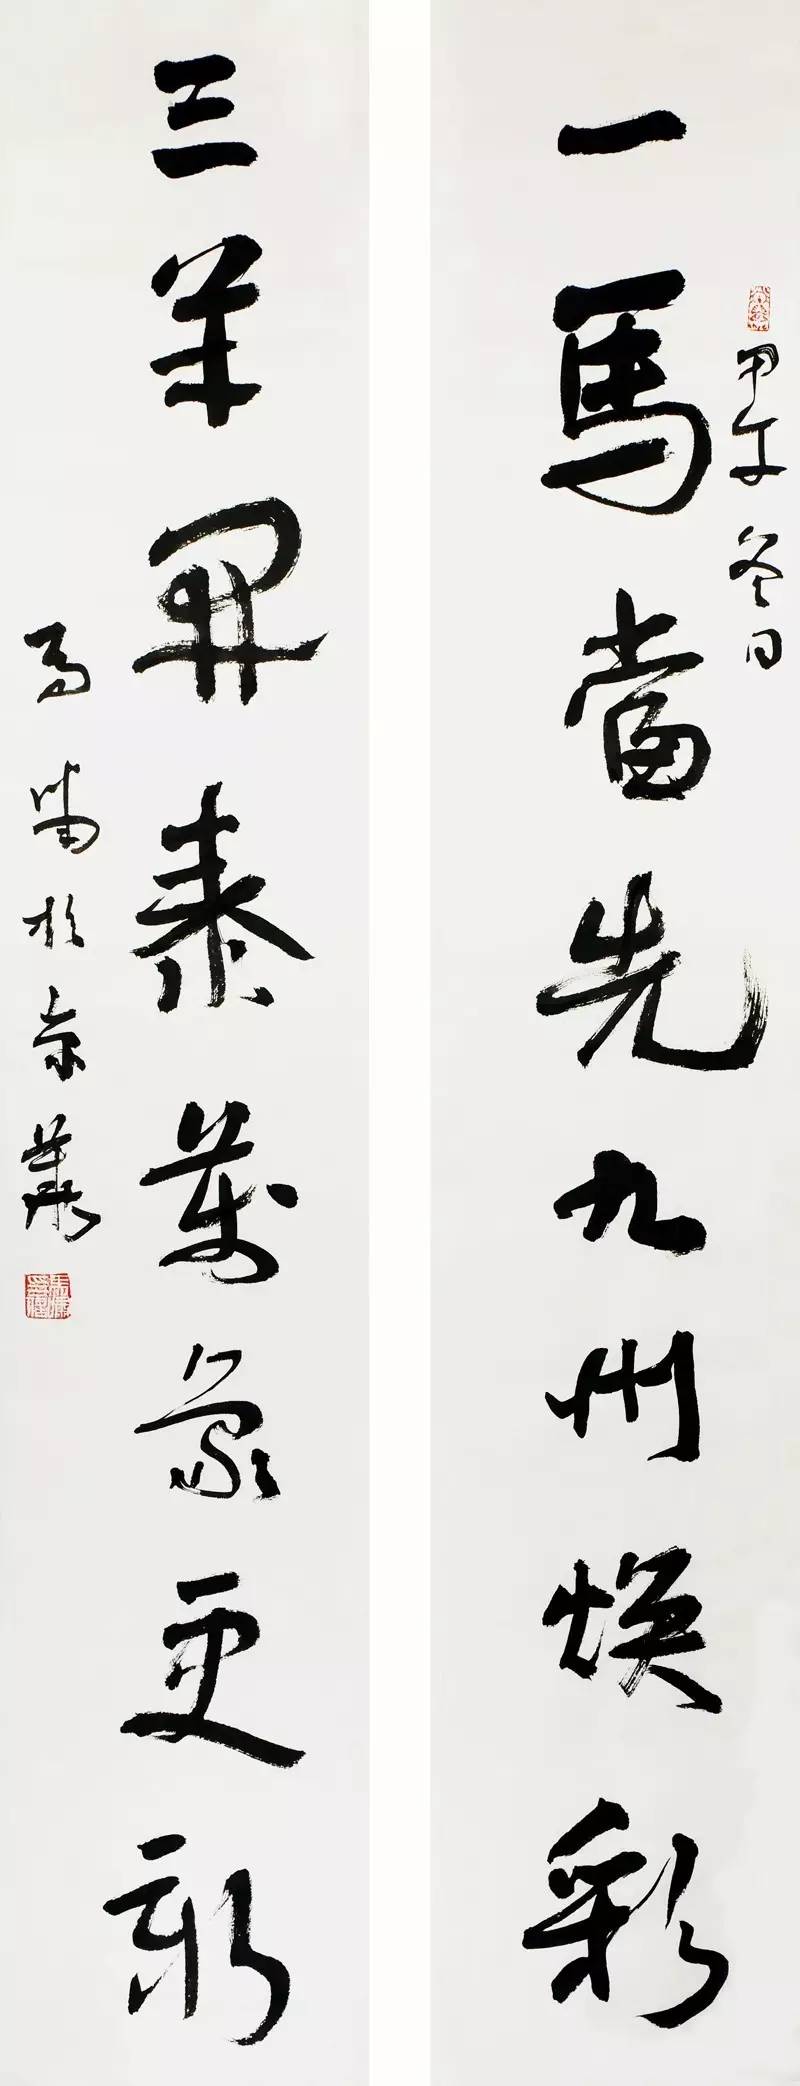 甲午冬日
一馬當先九州焕彩
三羊開泰萬象更新
馬 於京華